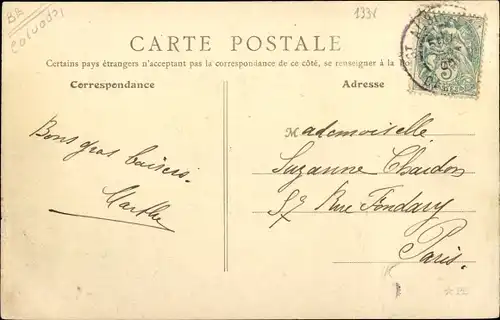 BA
Calvados
1331
CARTE POSTALE
Certains pays étrangers n'acceptant pas la correspondance de ce côté, se renseigner à la
Correspondance
Adresse
Bons gros baisers.
Marthe
Mademoiselle
Suzanne Chardon
57 Rue Fondary
Paris.